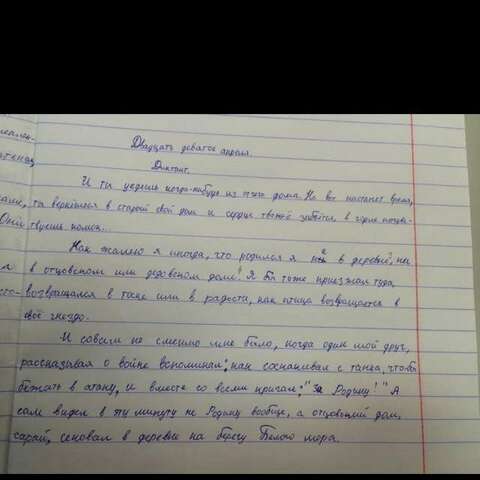 Двадцать девятое апреля.
Диктант.
И ты уедешь когда-нибудь из этого дома. Но вот настанет время,
ты вернёшься в старый свой дом и сердце твоё забьётся, в горле почувс-
Они твуешь комок...
Как жалею я иногда, что родился я не в деревне, не
в отцовском или дедовском доме! Я бы тоже приезжал туда,
возвращался в тоске или в радости, как птица возвращается в
своё гнездо.
И совсем не смешно мне было, когда один мой друг,
рассказывая о войне вспоминал: как соскакивал с танка, чтобы
бежать в атаку, и вместе со всеми кричал: "за Родину!" А
сам видел в эту минуту не Родину вообще, а отцовский дом,
сарай, сеновал в деревне на берегу Белого моря.